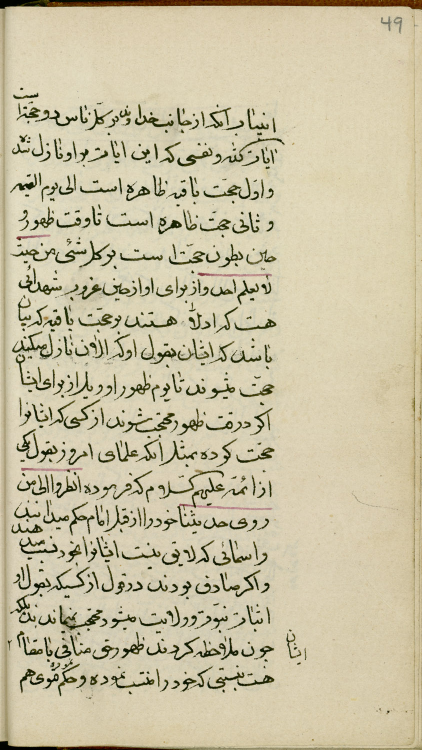 49
اینباب آنکه از جانب خداوند بر کل ناس دو حجة است
ایات کتب و نفسی که این ایات بر او نازل شده
و اول حجت باقیه ظاهره است الی یوم القیمة
و ثانی حجت ظاهره است تا وقت ظهور و
حین بطون حجت است بر کل شئی من حیث
لا یعلم احد و از برای او از حین غروب شهدائی
هست که ادلاء هستند بر حجت باقیه که بیان
باشد که ایشان بقول او که الان نازل میکند
حجت میشوند تا یوم ظهور او ویل از برای ایشان
اگر در وقت ظهور محتجب شوند از کسی که ایشانرا
حجت کرده بمثل آنکه علمای امروز بقول یکی
از ائمه علیهم السلام که فرموده انظروا الی من
روی حدیثنا خود را از قبل امام حکم میدانند
و اسمائی که لایق نیست ایشانرا بخود نسبت میدهند
و اگر صادق بودند در قول از کسیکه بقول او
اثبات نبوت و ولایت میشود محتجب نمیماندند بلکه
چون ملاحظه کردند ظهور حق منافی با مقام ایشان
هست بنسبتی که خود را منتسب نموده و حکم فتوی هم